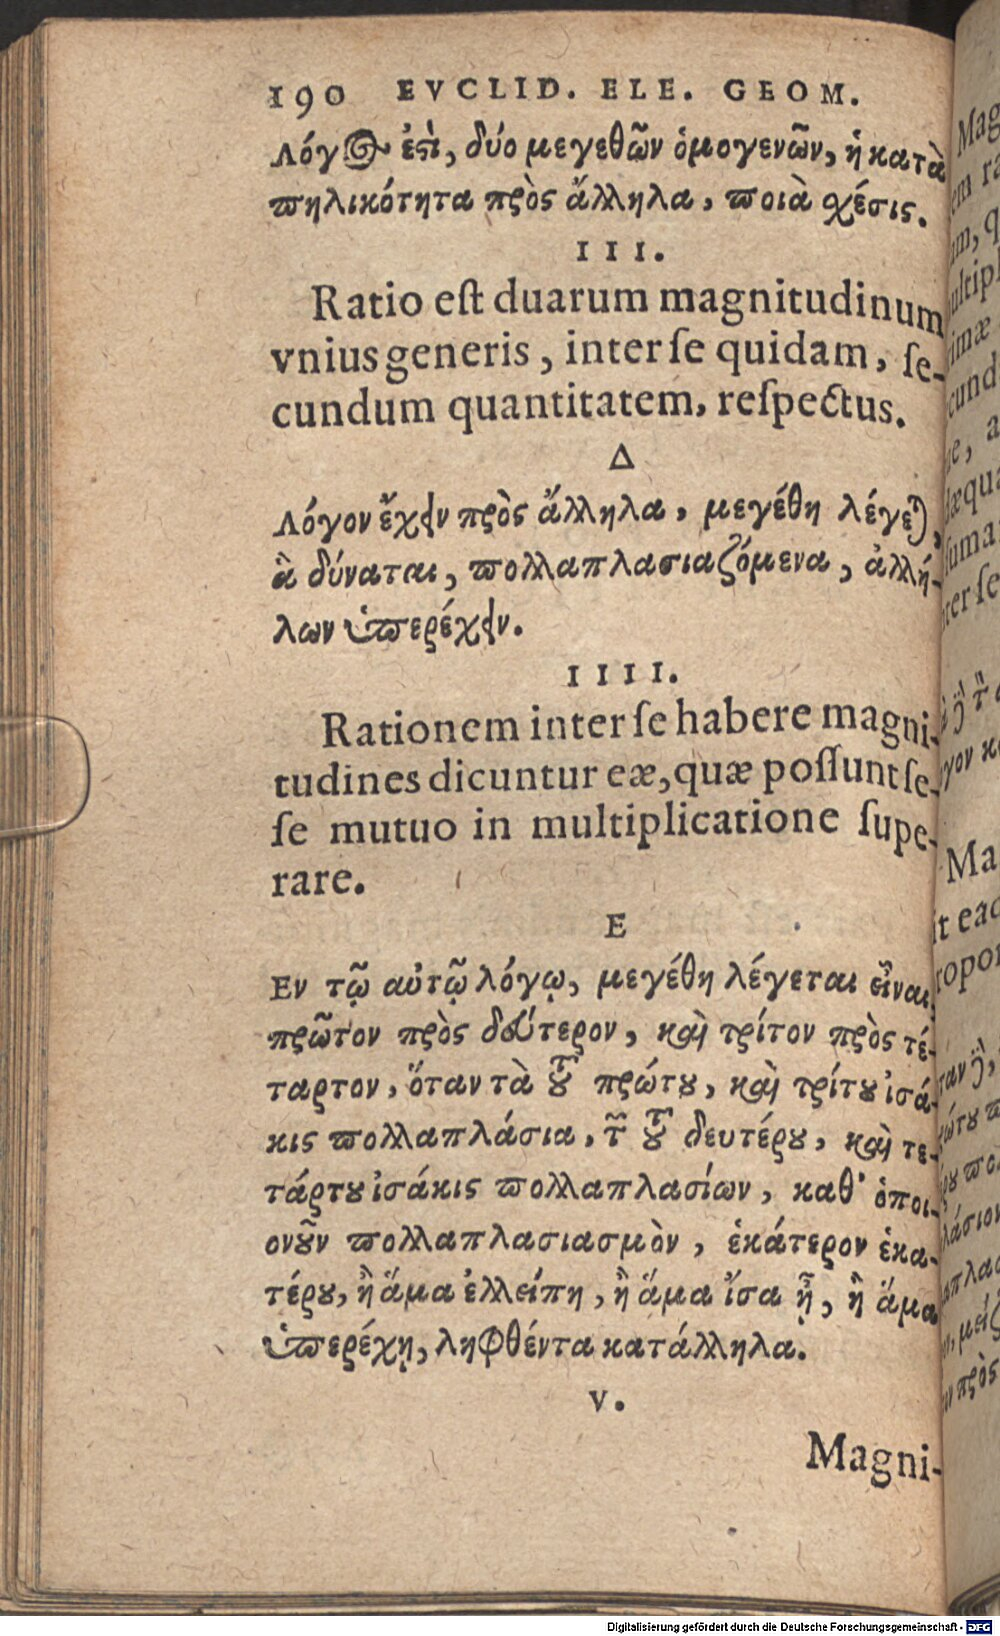 190 EVCLID. ELE. GEOM.
Λόγος ἐστὶ, δύο μεγεθῶν ὁμογενῶν, ἡ κατὰ
πηλικότητα πρὸς ἄλληλα, ποιὰ σχέσις.
III.
Ratio eſt duarum magnitudinum
vnius generis, inter ſe quidam, ſe-
cundum quantitatem, reſpectus.
Δ
Λόγον ἔχειν πρὸς ἄλληλα, μεγέθη λέγεται,
ἃ δύναται, πολλαπλασιαζόμενα, ἀλλή-
λων ὑπερέχειν.
IIII.
Rationem inter ſe habere magni-
tudines dicuntur eæ, quæ poſſunt ſe-
ſe mutuo in multiplicatione ſupe-
rare.
E
Εν τῷ αὐτῷ λόγῳ, μεγέθη λέγεται εἶναι,
πρῶτον πρὸς δεύτερον, καὶ τρίτον πρὸς τέ-
ταρτον, ὅταν τὰ τοῦ πρώτου, καὶ τρίτου ἰσά-
κις πολλαπλάσια, τῶν τοῦ δευτέρου, καὶ τε-
τάρτου ἰσάκις πολλαπλασίων, καθ' ὁποι-
ονοῦν πολλαπλασιασμὸν, ἑκάτερον ἑκα-
τέρου, ἢ ἅμα ἐλλείπη, ἢ ἅμα ἴσα ᾖ, ἢ ἅμα
ὑπερέχῃ, ληφθέντα κατάλληλα.
V.
Magni-
Digitalisierung gefördert durch die Deutsche Forschungsgemeinschaft - DFG